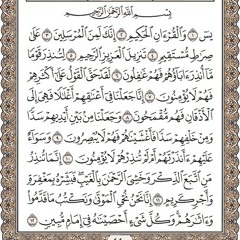 بِسْمِ ٱللَّهِ ٱلرَّحْمَٰنِ ٱلرَّحِيمِ
يسٓ ١ وَٱلْقُرْءَانِ ٱلْحَكِيمِ ٢ إِنَّكَ لَمِنَ ٱلْمُرْسَلِينَ ٣ عَلَىٰ
صِرَٰطٍ مُّسْتَقِيمٍ ٤ تَنزِيلَ ٱلْعَزِيزِ ٱلرَّحِيمِ ٥ لِتُنذِرَ قَوْمًا
مَّآ أُنذِرَ ءَابَآؤُهُمْ فَهُمْ غَٰفِلُونَ ٦ لَقَدْ حَقَّ ٱلْقَوْلُ عَلَىٰٓ أَكْثَرِهِمْ
فَهُمْ لَا يُؤْمِنُونَ ٧ إِنَّا جَعَلْنَا فِىٓ أَعْنَٰقِهِمْ أَغْلَٰلًا فَهِىَ إِلَى
ٱلْأَذْقَانِ فَهُم مُّقْمَحُونَ ٨ وَجَعَلْنَا مِنۢ بَيْنِ أَيْدِيهِمْ سَدًّا
وَمِنْ خَلْفِهِمْ سَدًّا فَأَغْشَيْنَٰهُمْ فَهُمْ لَا يُبْصِرُونَ ٩ وَسَوَآءٌ
عَلَيْهِمْ ءَأَنذَرْتَهُمْ أَمْ لَمْ تُنذِرْهُمْ لَا يُؤْمِنُونَ ١٠ إِنَّمَا تُنذِرُ
مَنِ ٱتَّبَعَ ٱلذِّكْرَ وَخَشِىَ ٱلرَّحْمَٰنَ بِٱلْغَيْبِ فَبَشِّرْهُ بِمَغْفِرَةٍ
وَأَجْرٍ كَرِيمٍ ١١ إِنَّا نَحْنُ نُحْىِ ٱلْمَوْتَىٰ وَنَكْتُبُ مَا قَدَّمُوا۟
وَءَاثَٰرَهُمْ وَكُلَّ شَىْءٍ أَحْصَيْنَٰهُ فِىٓ إِمَامٍ مُّبِينٍ ١٢